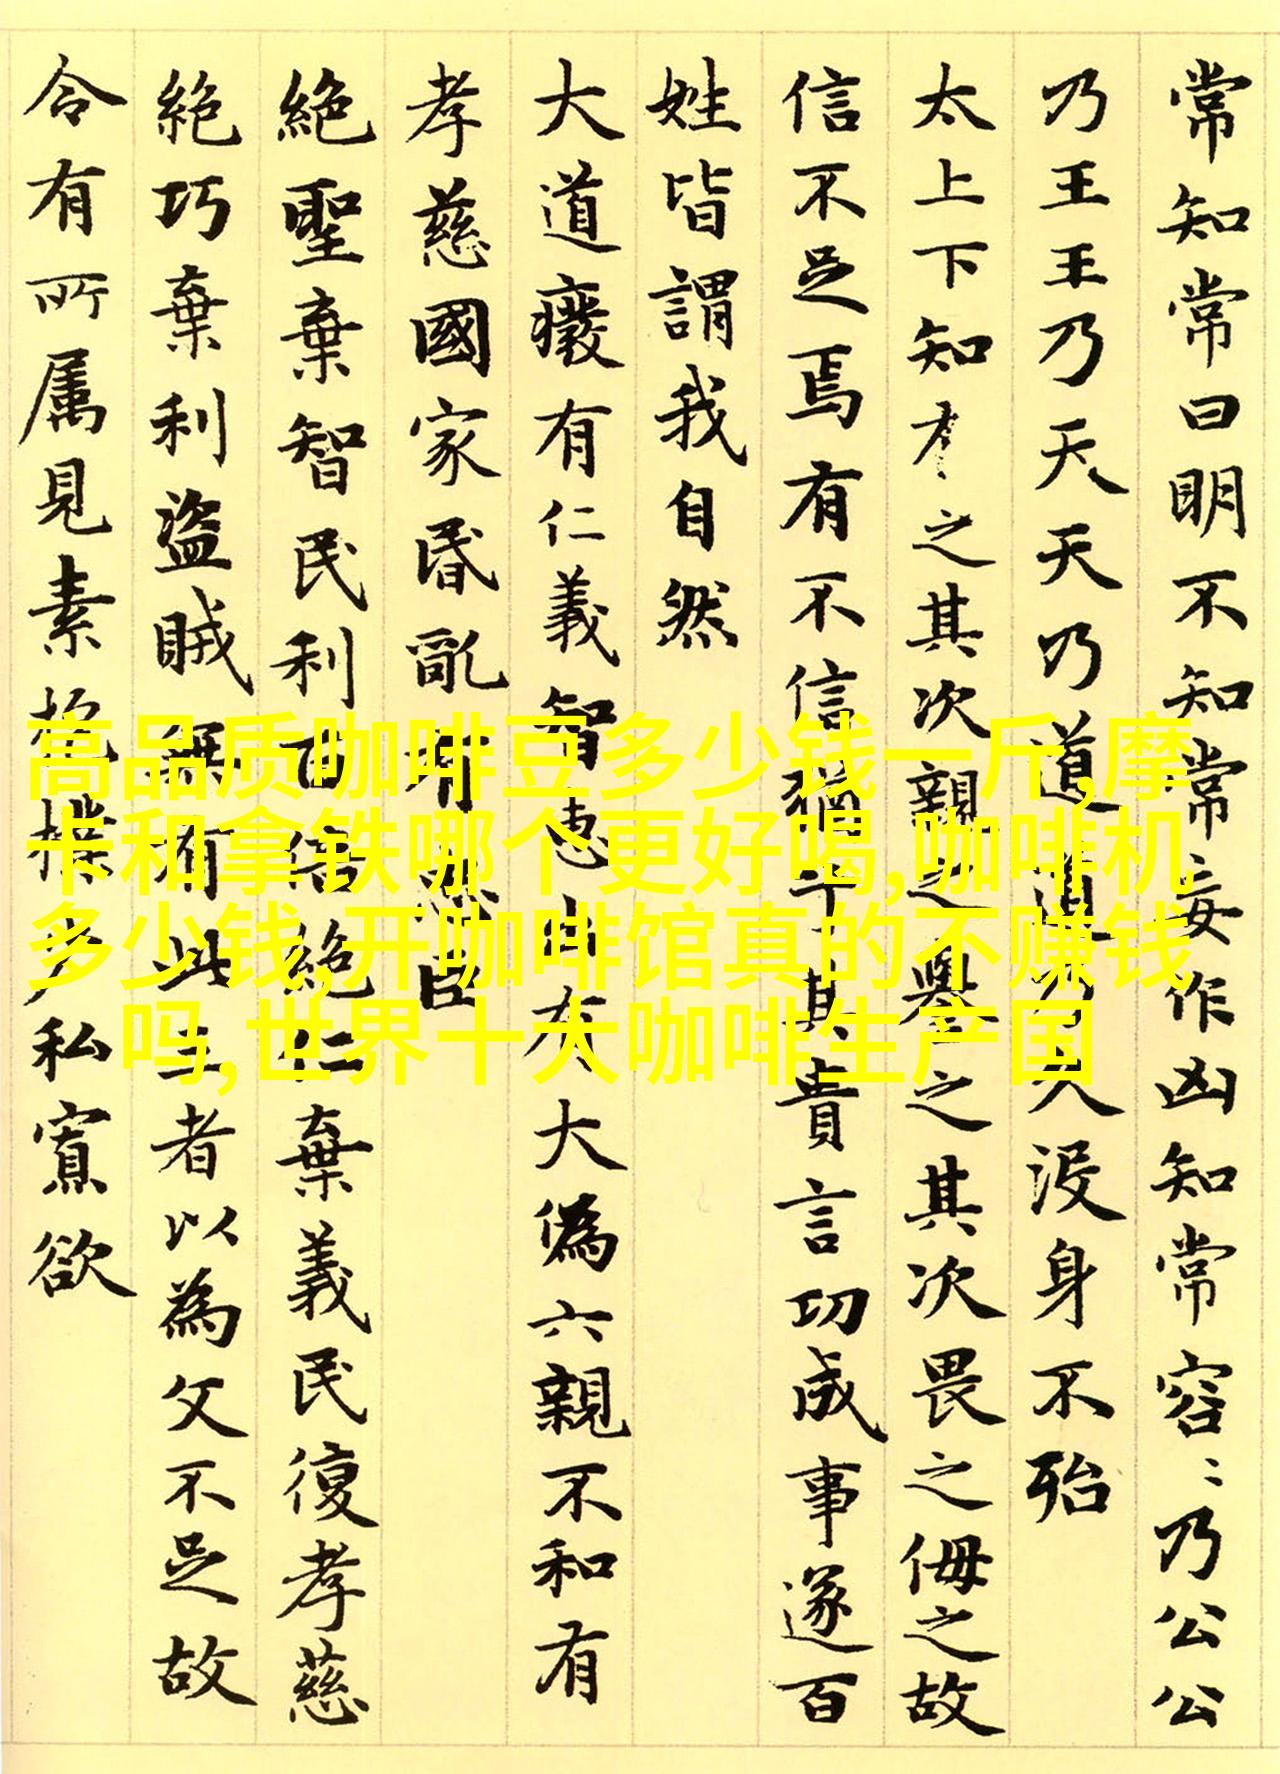 常知常曰明不知常妄作凶知常容〻乃公公
乃王王乃天天乃道道乃久没身不殆
太上下知有之其次親之譽之其次畏之侮之故
信不足焉有不信猶乎其貴言功成事遂百
姓皆謂我自然
大道癈有仁義智惠出有大偽六親不和有
孝慈國家昏亂有忠臣
絶聖棄智民利百倍絶仁棄義民復孝慈
絶巧棄利盗賊無有此三者以為文不足故
令有所属見素抱樸少私寡欲
高品质咖啡豆多少钱一斤,摩
卡和拿铁哪个更好喝,咖啡机
多少钱,开咖啡馆真的不赚钱
吗,世界十大咖啡生产国